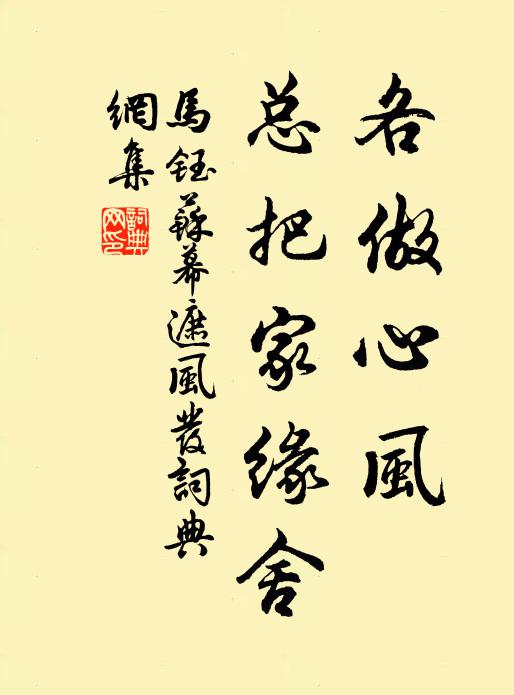 各做心風
总把家缘舍
馬鈺蘇幕遮風發詞典
網集
詞典网印